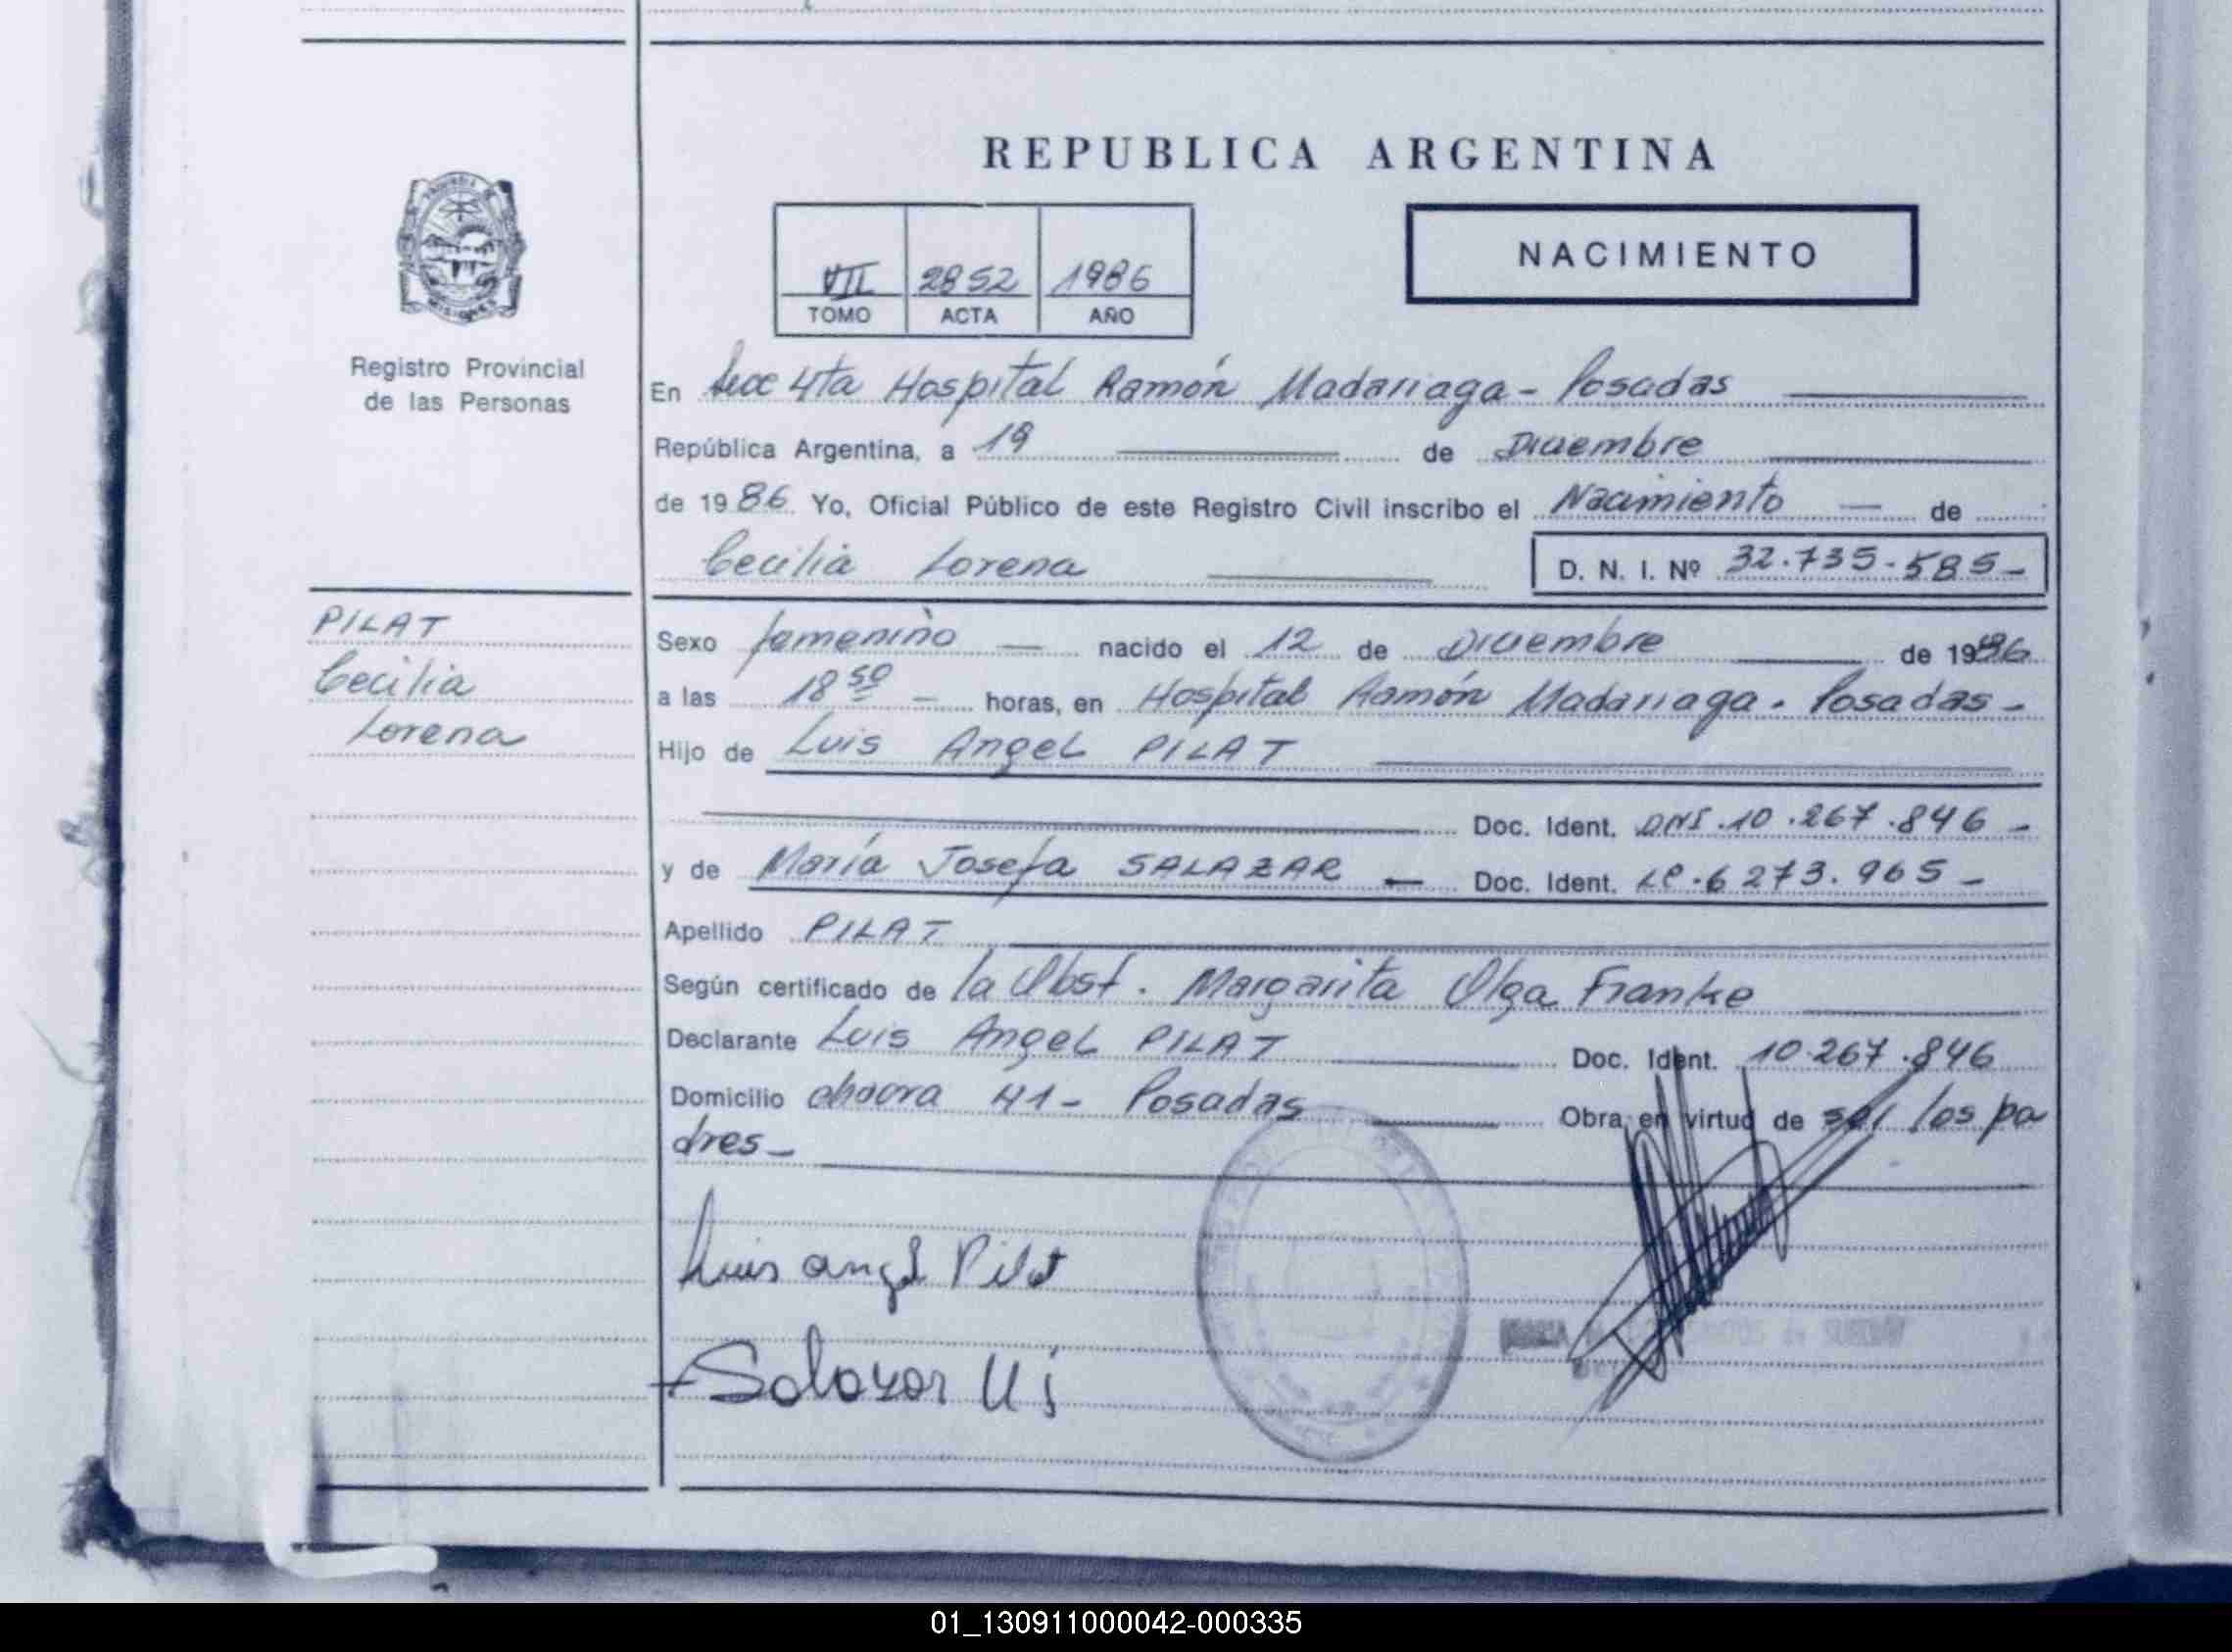 REPUBLICA ARGENTINA
VII 2852 1986
TOMO ACTA AÑO
NACIMIENTO
Registro Provincial
de las Personas
En Secc 4ta Hospital Ramón Madariaga - Posadas
República Argentina, a 19 de Diciembre
de 1986 Yo, Oficial Público de este Registro Civil inscribo el Nacimiento — de
Cecilia Lorena
D. N. I. Nº 32.735.585-
PILAT
Cecilia
Lorena
Sexo femenino — nacido el 12 de Diciembre de 1986
a las 18 50 - horas, en Hospital Ramón Madariaga - Posadas -
Hijo de Luis Angel PILAT
Doc. Ident. DNI.10.267.846 -
y de María Josefa SALAZAR — Doc. Ident. LC.6273.965 -
Apellido PILAT
Según certificado de la Obst. Margarita Olga Franke
Declarante Luis Angel PILAT Doc. Ident. 10.267.846
Domicilio chacra 41 - Posadas Obra, en virtud de ser los pa
dres -
Luis angel Pilat
Salazar M j
01_130911000042-000335